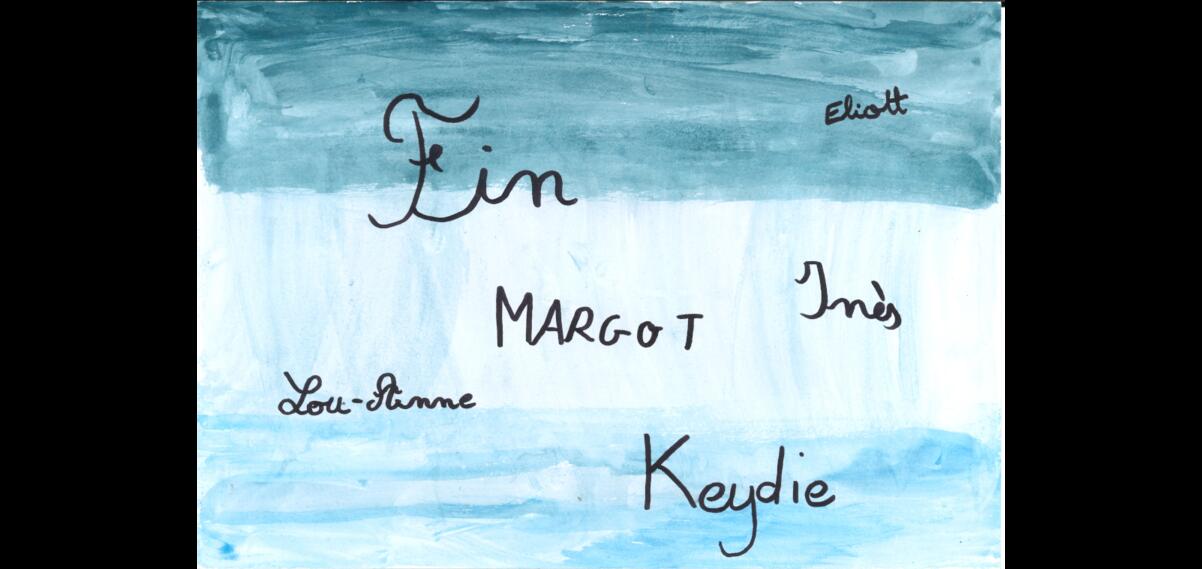 Eliott
Fin
Inès
MARGOT
Lou-Anne
Keydie